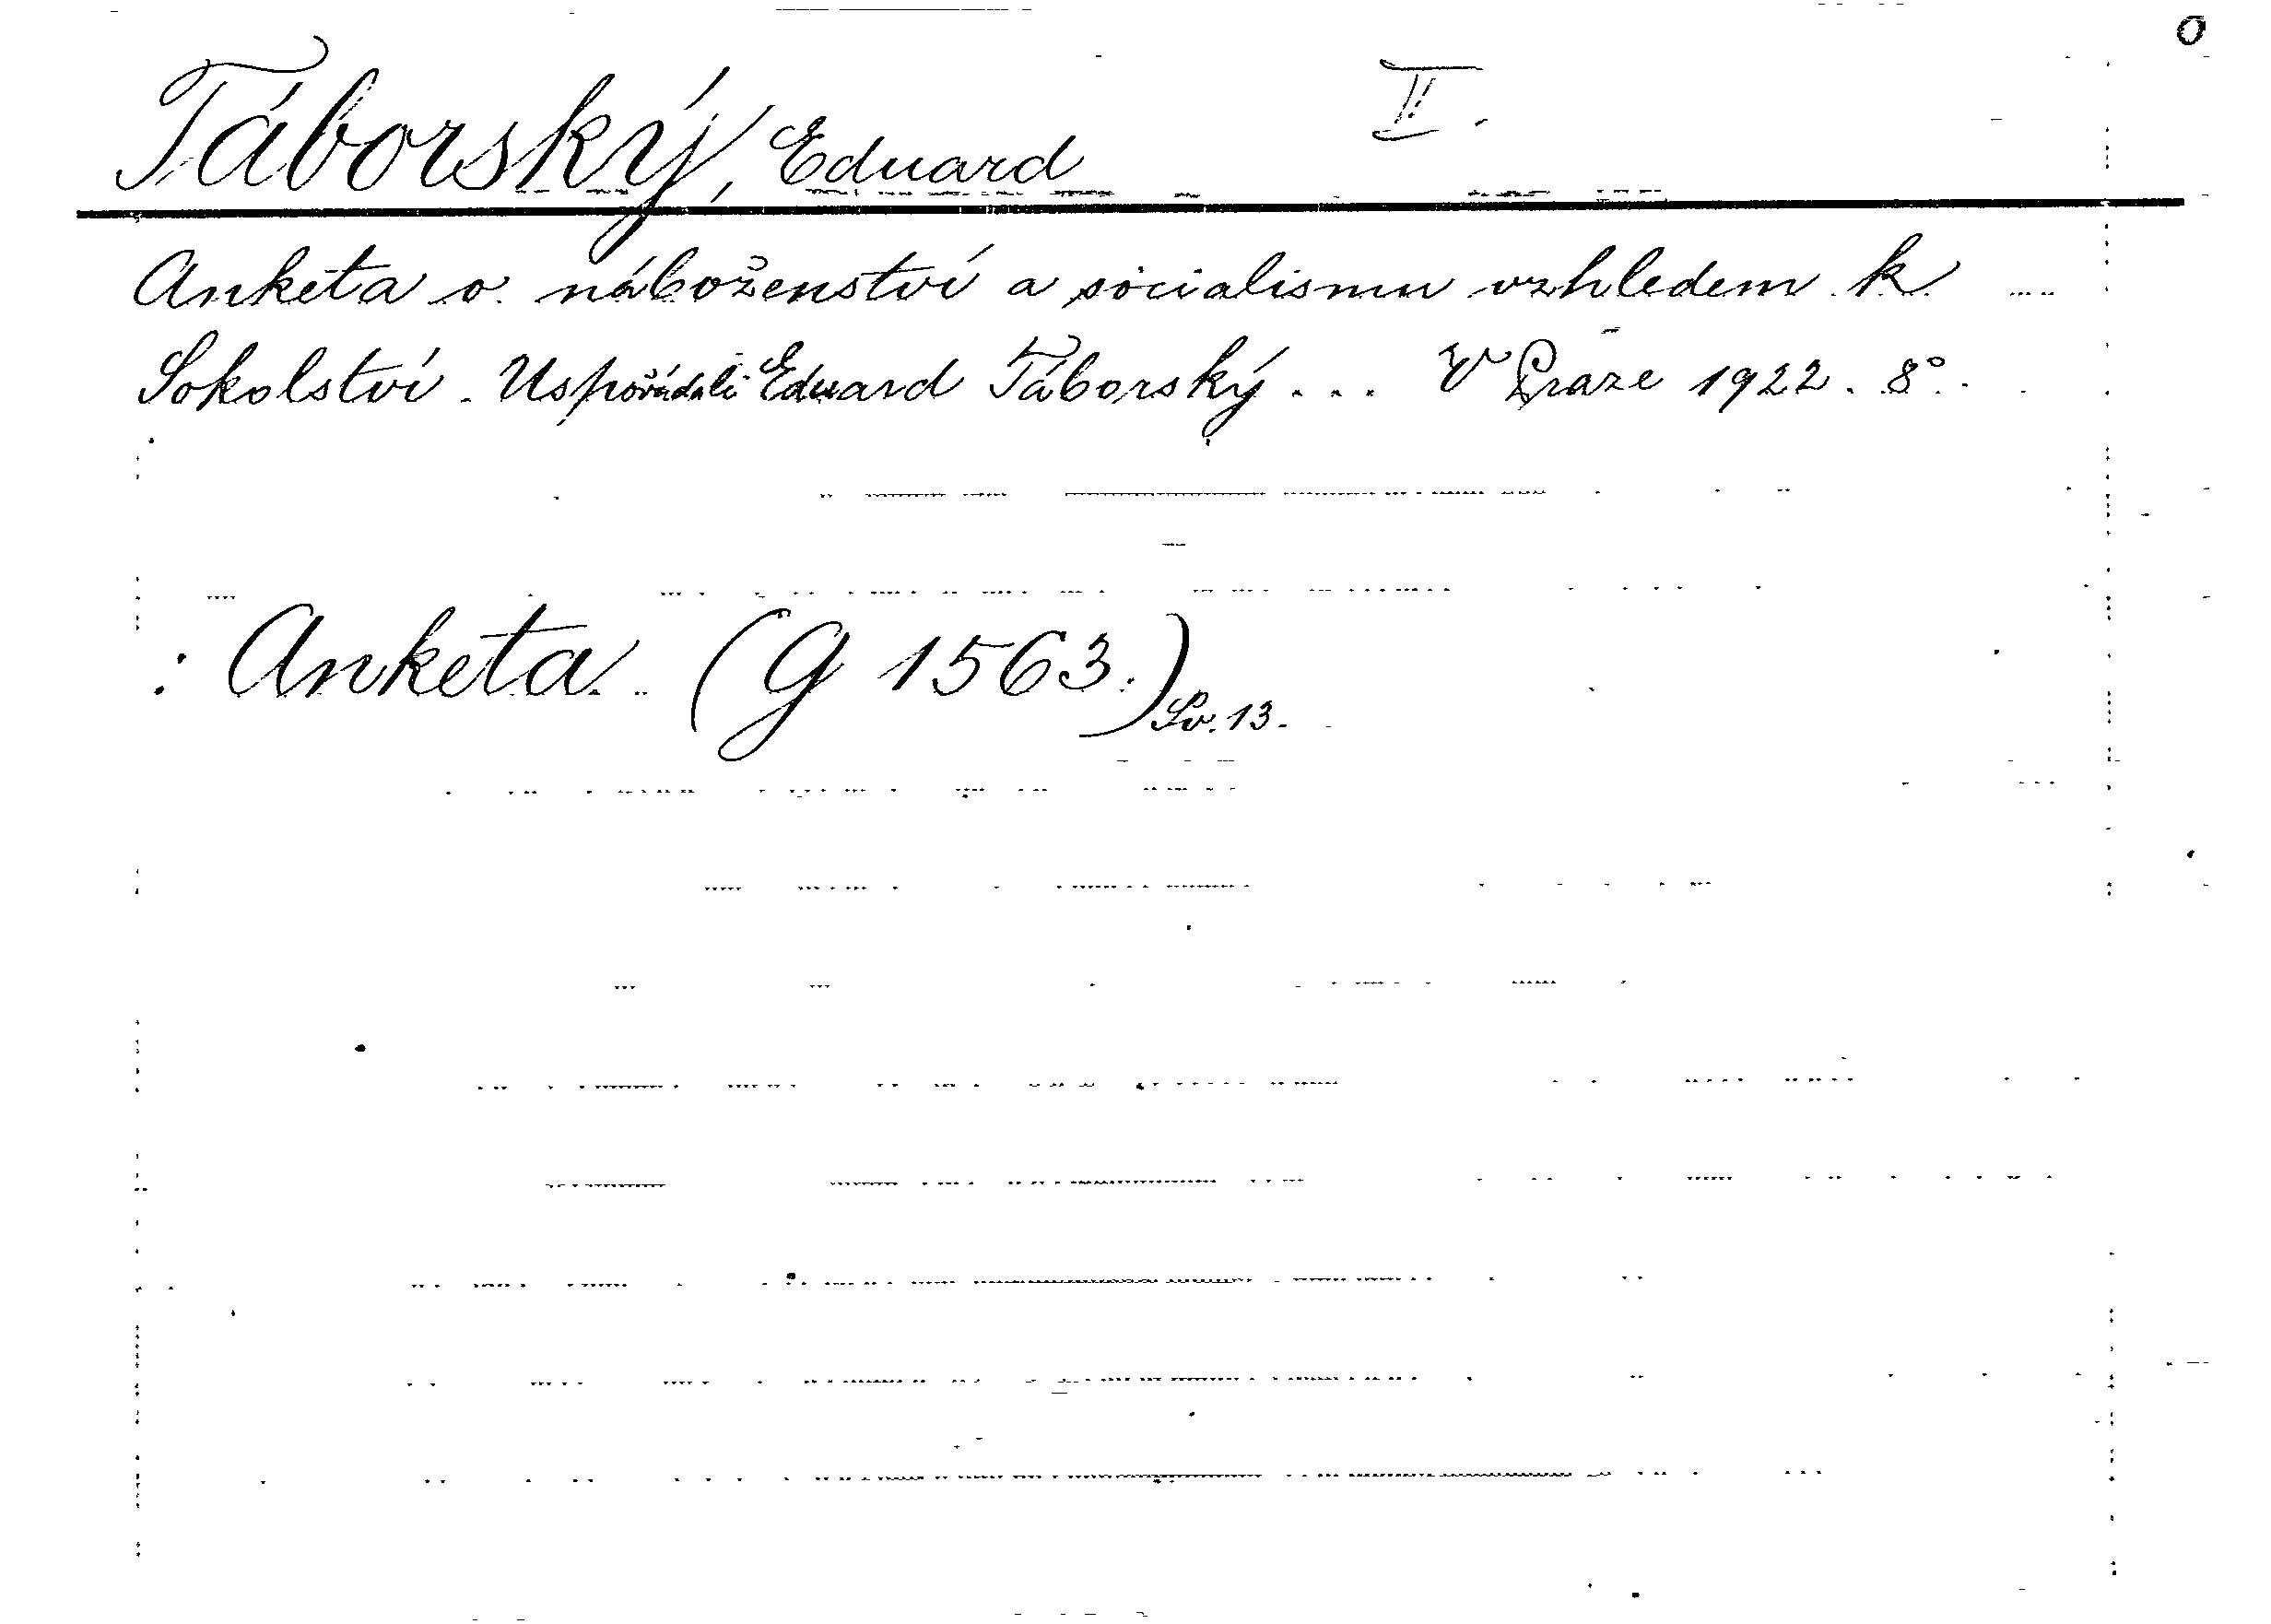 Táborský, Eduard II.
Anketa o náboženství a socialismu vzhledem k
Sokolství. Uspořádali Eduard Táborský... V Praze 1922. 8°.
: Anketa. (G 1563.) Sv. 13.